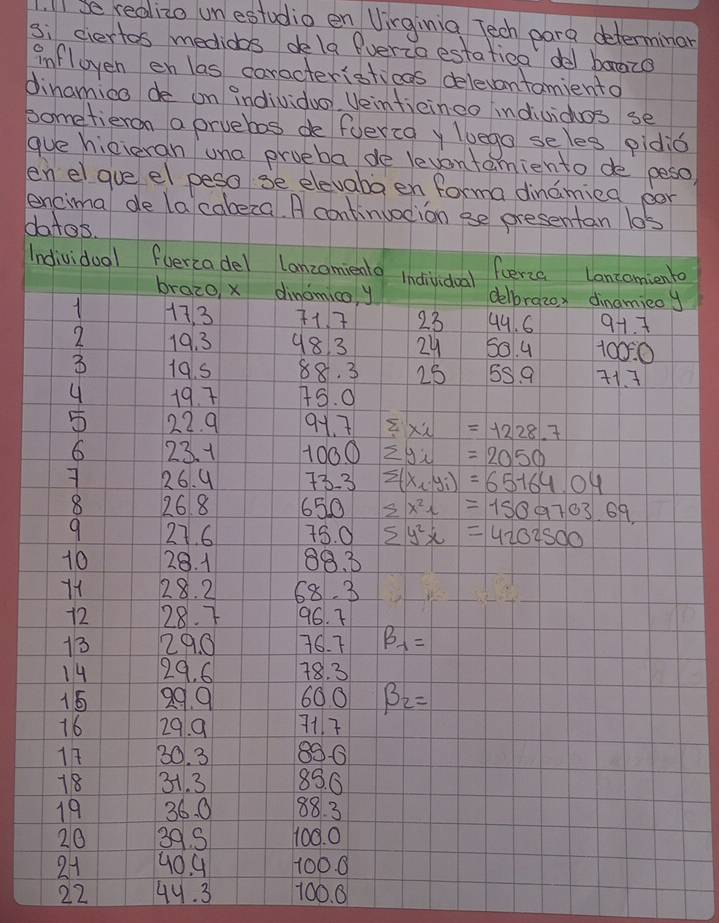 1.11 Se realizo un estudio en Virginia Tech para determinar
si ciertos medidos de la fuerza estatica del barazo
influyen en las caracteristicas delevantamiento
dinamico de un individuo. Veinticinco individuos se
sometieron a pruebas de fuerza y luego se les pidió
que hicieran una prueba de levantamiento de peso,
en el que el peso se elevaba en forma dinámica por
encima de la cabeza. A continuación se presentan los
datos.
Individual fuerza del lanzamiento Individual fuerza Lanzamiento
brazo, x dinámico, y delbrazo, x dinamico y
1 17.3 71.7 23 44.6 91.7
2 19.3 48.3 24 50.4 100.0
3 19.5 88.3 25 55.9 71.7
4 19.7 75.0
5 22.9 91.7 Σxi = 1228.7
6 23.1 100.0 Σyi = 2050
7 26.4 73.3 Σ(xi·yi) = 65164.04
8 26.8 65.0 Σx²i = 1509703.69
9 27.6 75.0 Σy²i = 4202500
10 28.1 88.3
11 28.2 68.3
12 28.7 96.7
13 29.0 76.7 β1=
14 29.6 78.3
15 29.9 60.0 β2=
16 29.9 71.7
17 30.3 85.0
18 31.3 85.0
19 36.0 88.3
20 39.5 100.0
21 40.4 100.0
22 44.3 100.0